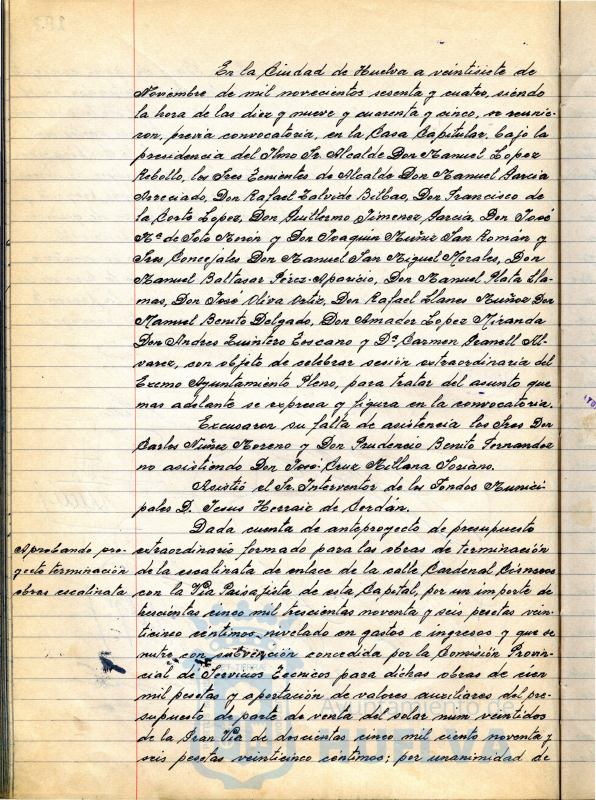 En la Ciudad de Huelva a veintisiete de
Noviembre de mil novecientos sesenta y cuatro, siendo
la hora de las diez y nueve y cuarenta y cinco, se reunie-
ron, previa convocatoria, en la Casa Capitular, bajo la
presidencia del Ilmo Sr. Alcalde Don Manuel Lopez
Rebollo, los Sres Tenientes de Alcalde Don Manuel Garcia
Arreciado, Don Rafael Zalvide Bilbao, Don Francisco de
la Corte Lopez, Don Guillermo Jimenez Garcia, Don José
Mª de Soto Morón y Don Joaquin Nuñez San Román y
Sres Concejales Don Manuel San Miguel Morales, Don
Manuel Baltasar Pérez-Aparicio, Don Manuel Plata Lla-
mas, Don José Oliva Ortiz, Don Rafael Llanes Muñoz Don
Manuel Benito Delgado, Don Amador Lopez Miranda
Don Andres Quintero Toscano y Dª Carmen Granell Al-
varez, con objeto de celebrar sesión extraordinaria del
Excmo Ayuntamiento Pleno, para tratar del asunto que
mas adelante se expresa y figura en la convocatoria.
Excusaron su falta de asistencia los Sres Don
Carlos Nuñez Moreno y Don Prudencio Benito Fernandez
no asistiendo Don José Cruz Millana Soriano.
Asistió el Sr. Interventor de los Fondos Munici-
pales D. Jesus Herraiz de Serdán.
Dada cuenta de anteproyecto de presupuesto
Aprobando pro-
yecto terminación
obras escalinata
extraordinario formado para las obras de terminación
de la escalinata de enlace de la calle Cardenal Cisneros
con la Via Paisajista de esta Capital, por un importe de
trescientas cinco mil trescientas noventa y seis pesetas vein-
ticinco centimos, nivelado en gastos e ingresos y que se
nutre con subvención concedida por la Comisión Provin-
cial de Servicios Tecnicos para dichas obras de cien
mil pesetas y aportación de valores auxiliares del pre-
supuesto de parte de venta del solar num veintidos
de la Gran Via de doscientas cinco mil ciento noventa y
seis pesetas veinticinco céntimos; por unanimidad de
Ayuntamiento de
HUELVA